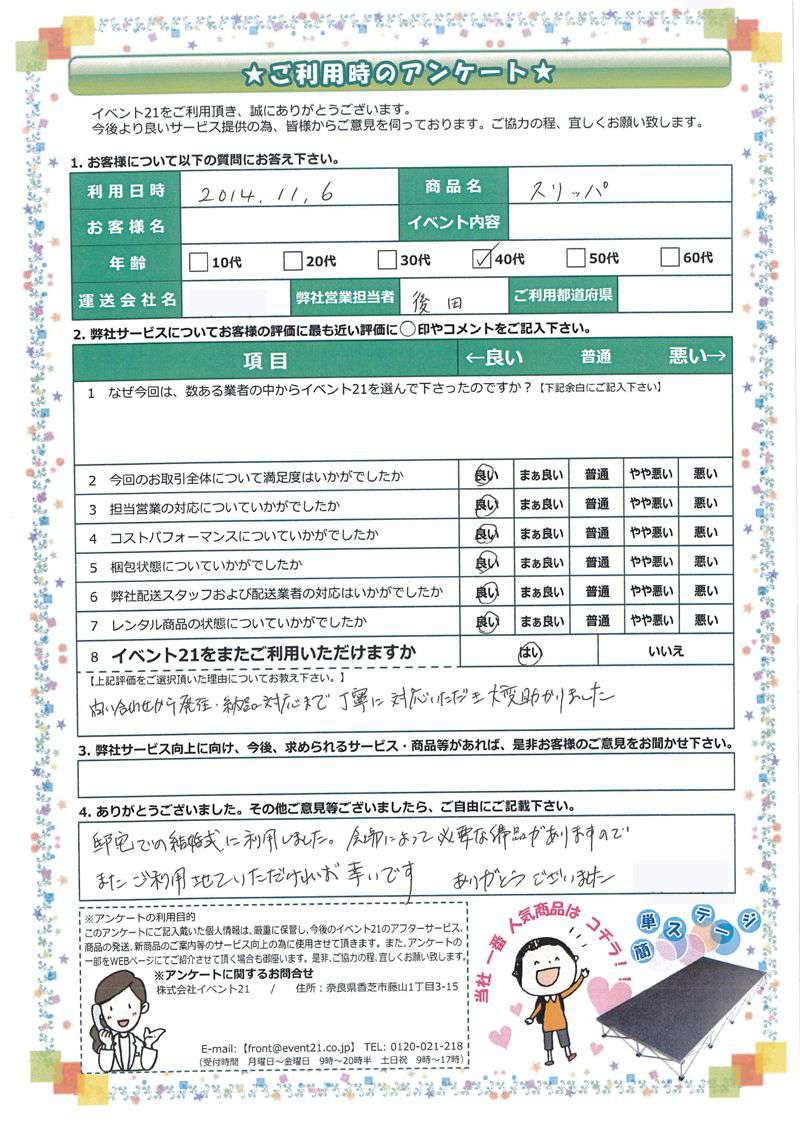 ★ご利用時のアンケート★
イベント21をご利用頂き、誠にありがとうございます。
今後より良いサービス提供の為、皆様からご意見を伺っております。ご協力の程、宜しくお願い致します。
1. お客様について以下の質問にお答え下さい。
利用日時 2014.11.6 商品名 スリッパ
お客様名 イベント内容
年齢 10代 20代 30代 ✓40代 50代 60代
運送会社名 弊社営業担当者 後田 ご利用都道府県
2. 弊社サービスについてお客様の評価に最も近い評価に○印やコメントをご記入下さい。
項目 ←良い 普通 悪い→
1 なぜ今回は、数ある業者の中からイベント21を選んで下さったのですか？【下記余白にご記入下さい】
2 今回のお取引全体について満足度はいかがでしたか 良い まぁ良い 普通 やや悪い 悪い
3 担当営業の対応についていかがでしたか 良い まぁ良い 普通 やや悪い 悪い
4 コストパフォーマンスについていかがでしたか 良い まぁ良い 普通 やや悪い 悪い
5 梱包状態についていかがでしたか 良い まぁ良い 普通 やや悪い 悪い
6 弊社配送スタッフおよび配送業者の対応はいかがでしたか 良い まぁ良い 普通 やや悪い 悪い
7 レンタル商品の状態についていかがでしたか 良い まぁ良い 普通 やや悪い 悪い
8 イベント21をまたご利用いただけますか はい いいえ
【上記評価をご選択頂いた理由についてお教え下さい。】
問い合わせから発注・納品対応まで丁寧に対応いただき大変助かりました
3. 弊社サービス向上に向け、今後、求められるサービス・商品等があれば、是非お客様のご意見をお聞かせ下さい。
4. ありがとうございました。その他ご意見等ございましたら、ご自由にご記載下さい。
邸宅での結婚式に利用しました。会場によって必要な備品がありますので
またご利用 ていただければ幸いです ありがとうございました
※アンケートの利用目的
このアンケートにご記入戴いた個人情報は、厳重に保管し、今後のイベント21のアフターサービス、
商品の発送、新商品のご案内等のサービス向上の為に使用させて頂きます。また、アンケートの
一部をWEBページにてご紹介させて頂く場合も御座います。是非、ご協力の程、宜しくお願い致します。
※アンケートに関するお問合せ
株式会社イベント21 / 住所：奈良県香芝市藤山1丁目3-15
E-mail:【front@event21.co.jp】 TEL: 0120-021-218
（受付時間 月曜日～金曜日 9時～20時半 土日祝 9時～17時）
当社一番人気商品はコチラ！！
簡単ステージ